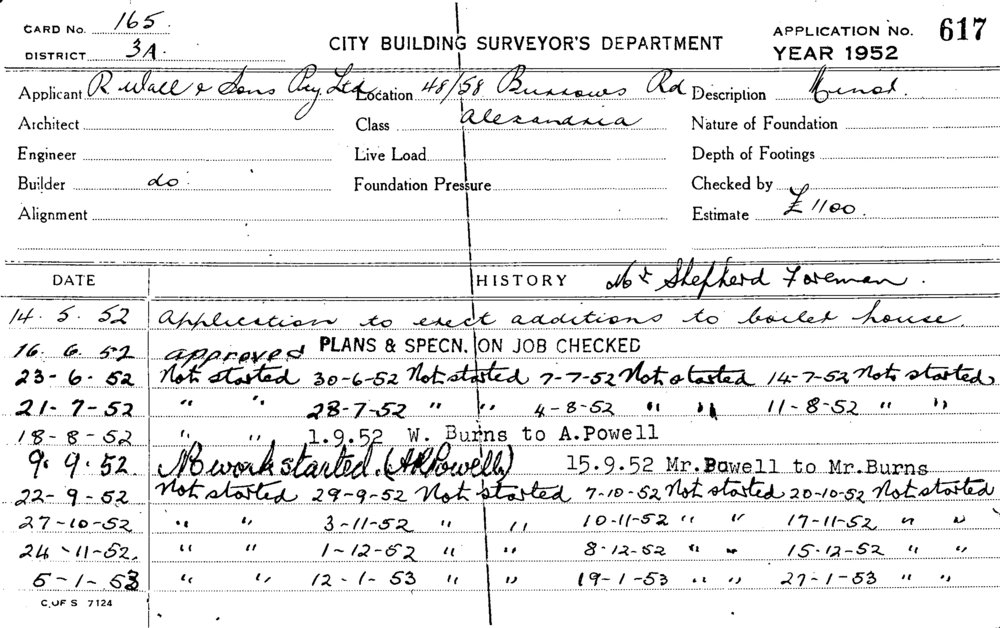 CARD No. 165.
DISTRICT 3A.
CITY BUILDING SURVEYOR'S DEPARTMENT
APPLICATION No. 617
YEAR 1952
Applicant R Wall & Sons Pty Ltd Location 48/58 Burrows Rd Description Minor.
Architect Class Alexandria Nature of Foundation
Engineer Live Load Depth of Footings
Builder do. Foundation Pressure Checked by
Alignment Estimate £1100.
DATE HISTORY Mr Shepherd Foreman.
14. 5. 52 Application to erect additions to boiler house.
16. 6. 52 approved PLANS & SPECN. ON JOB CHECKED
23-6.52 Not started 30-6-52 Not started 7-7-52 Not started 14-7-52 Not started
21-7-52 " " 28-7-52 " " 4-8-52 " " 11-8-52 " "
18-8-52 " " 1.9.52 W. Burns to A.Powell
9.9.52 No work started. (A Powell) 15.9.52 Mr.Powell to Mr.Burns
22-9-52 Not started 29-9-52 Not started 7-10-52 Not started 20-10-52 Not started
27-10-52 " " 3-11-52 " " 10-11-52 " " 17-11-52 " "
24-11-52. " " 1-12-52 " " 8-12-52 " " 15-12-52 " "
5-1-53 " " 12-1-53 " " 19-1-53 " " 27-1-53 " "
C. OF S 7124